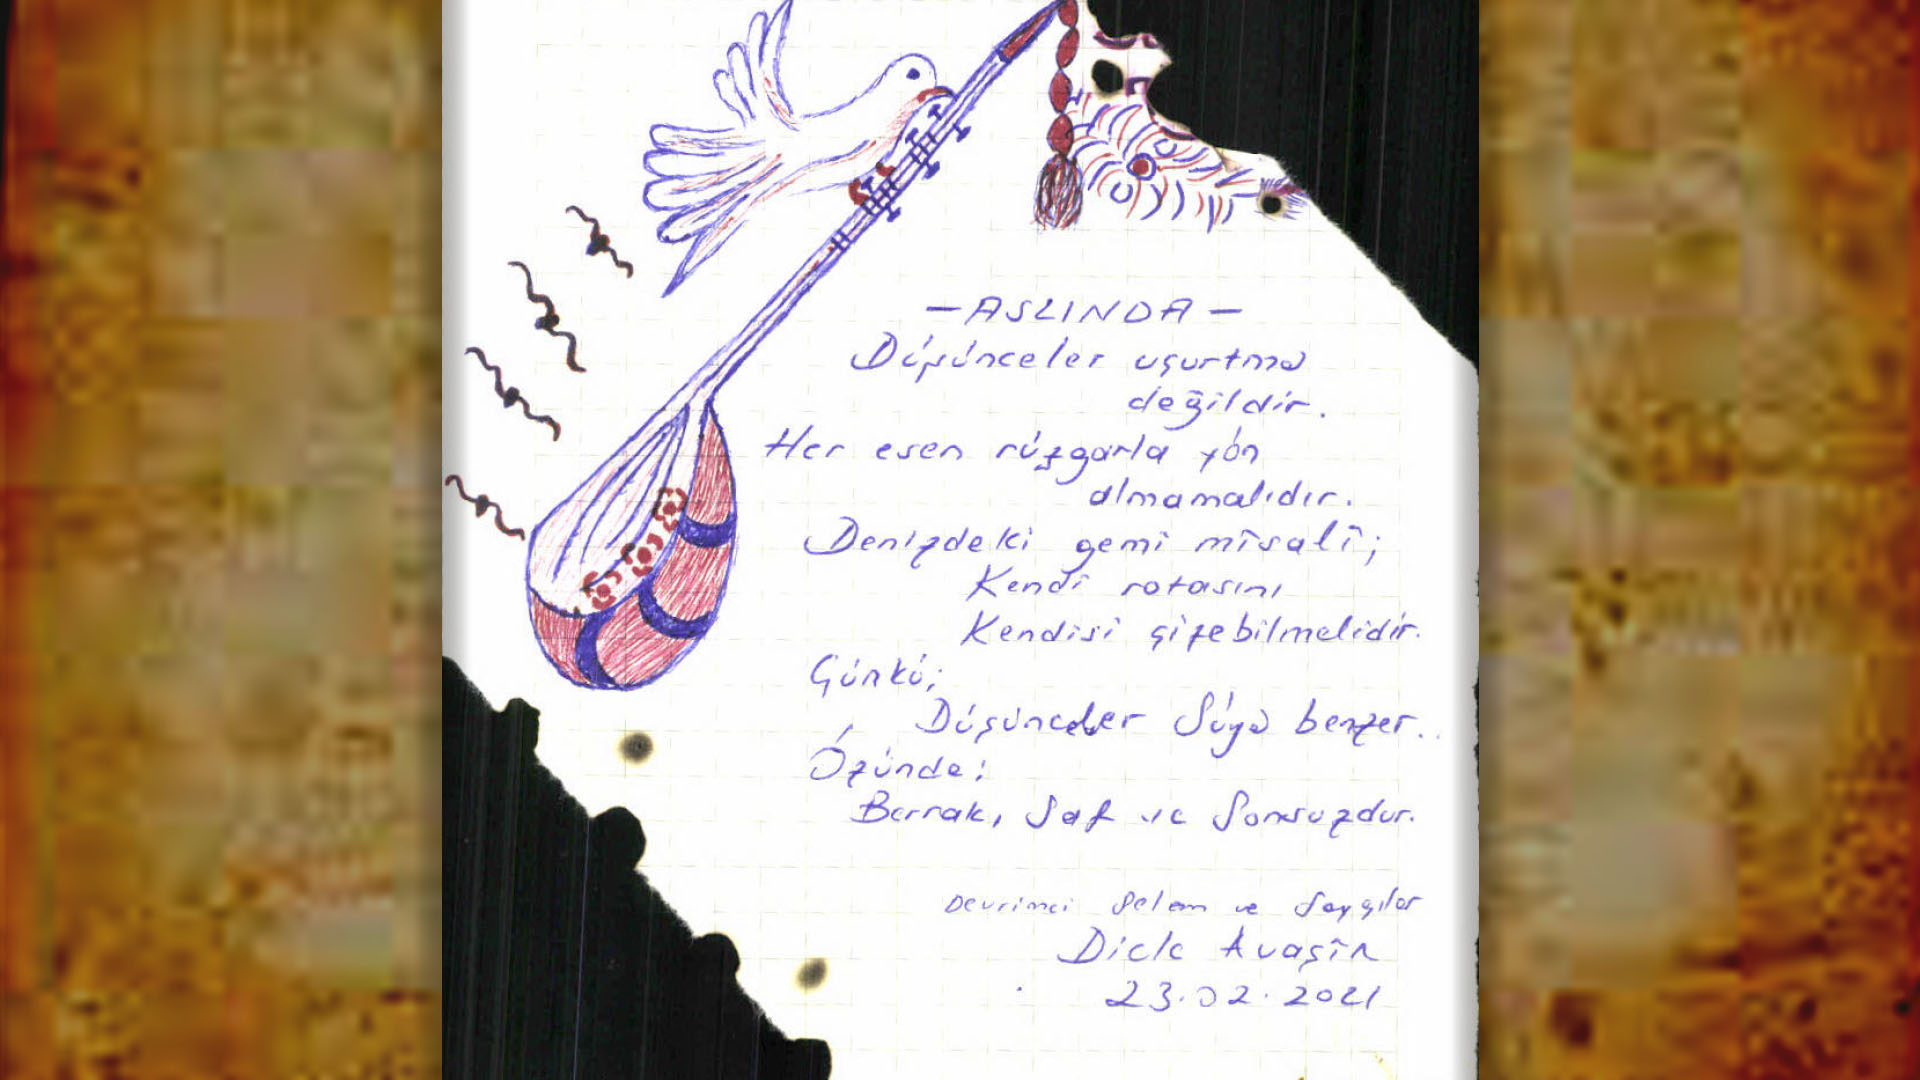 - ASLINDA -
Düşünceler uçurtma
değildir.
Her esen rüzgarla yön
almamalıdır.
Denizdeki gemi misali;
Kendi rotasını
Kendisi çizebilmelidir.
Çünkü;
Düşünceler Suya benzer..
Özünde;
Berrak, Saf ve Sonsuzdur.
Devrimci Selam ve Saygılar
Dicle Avaşin
23.02.2021